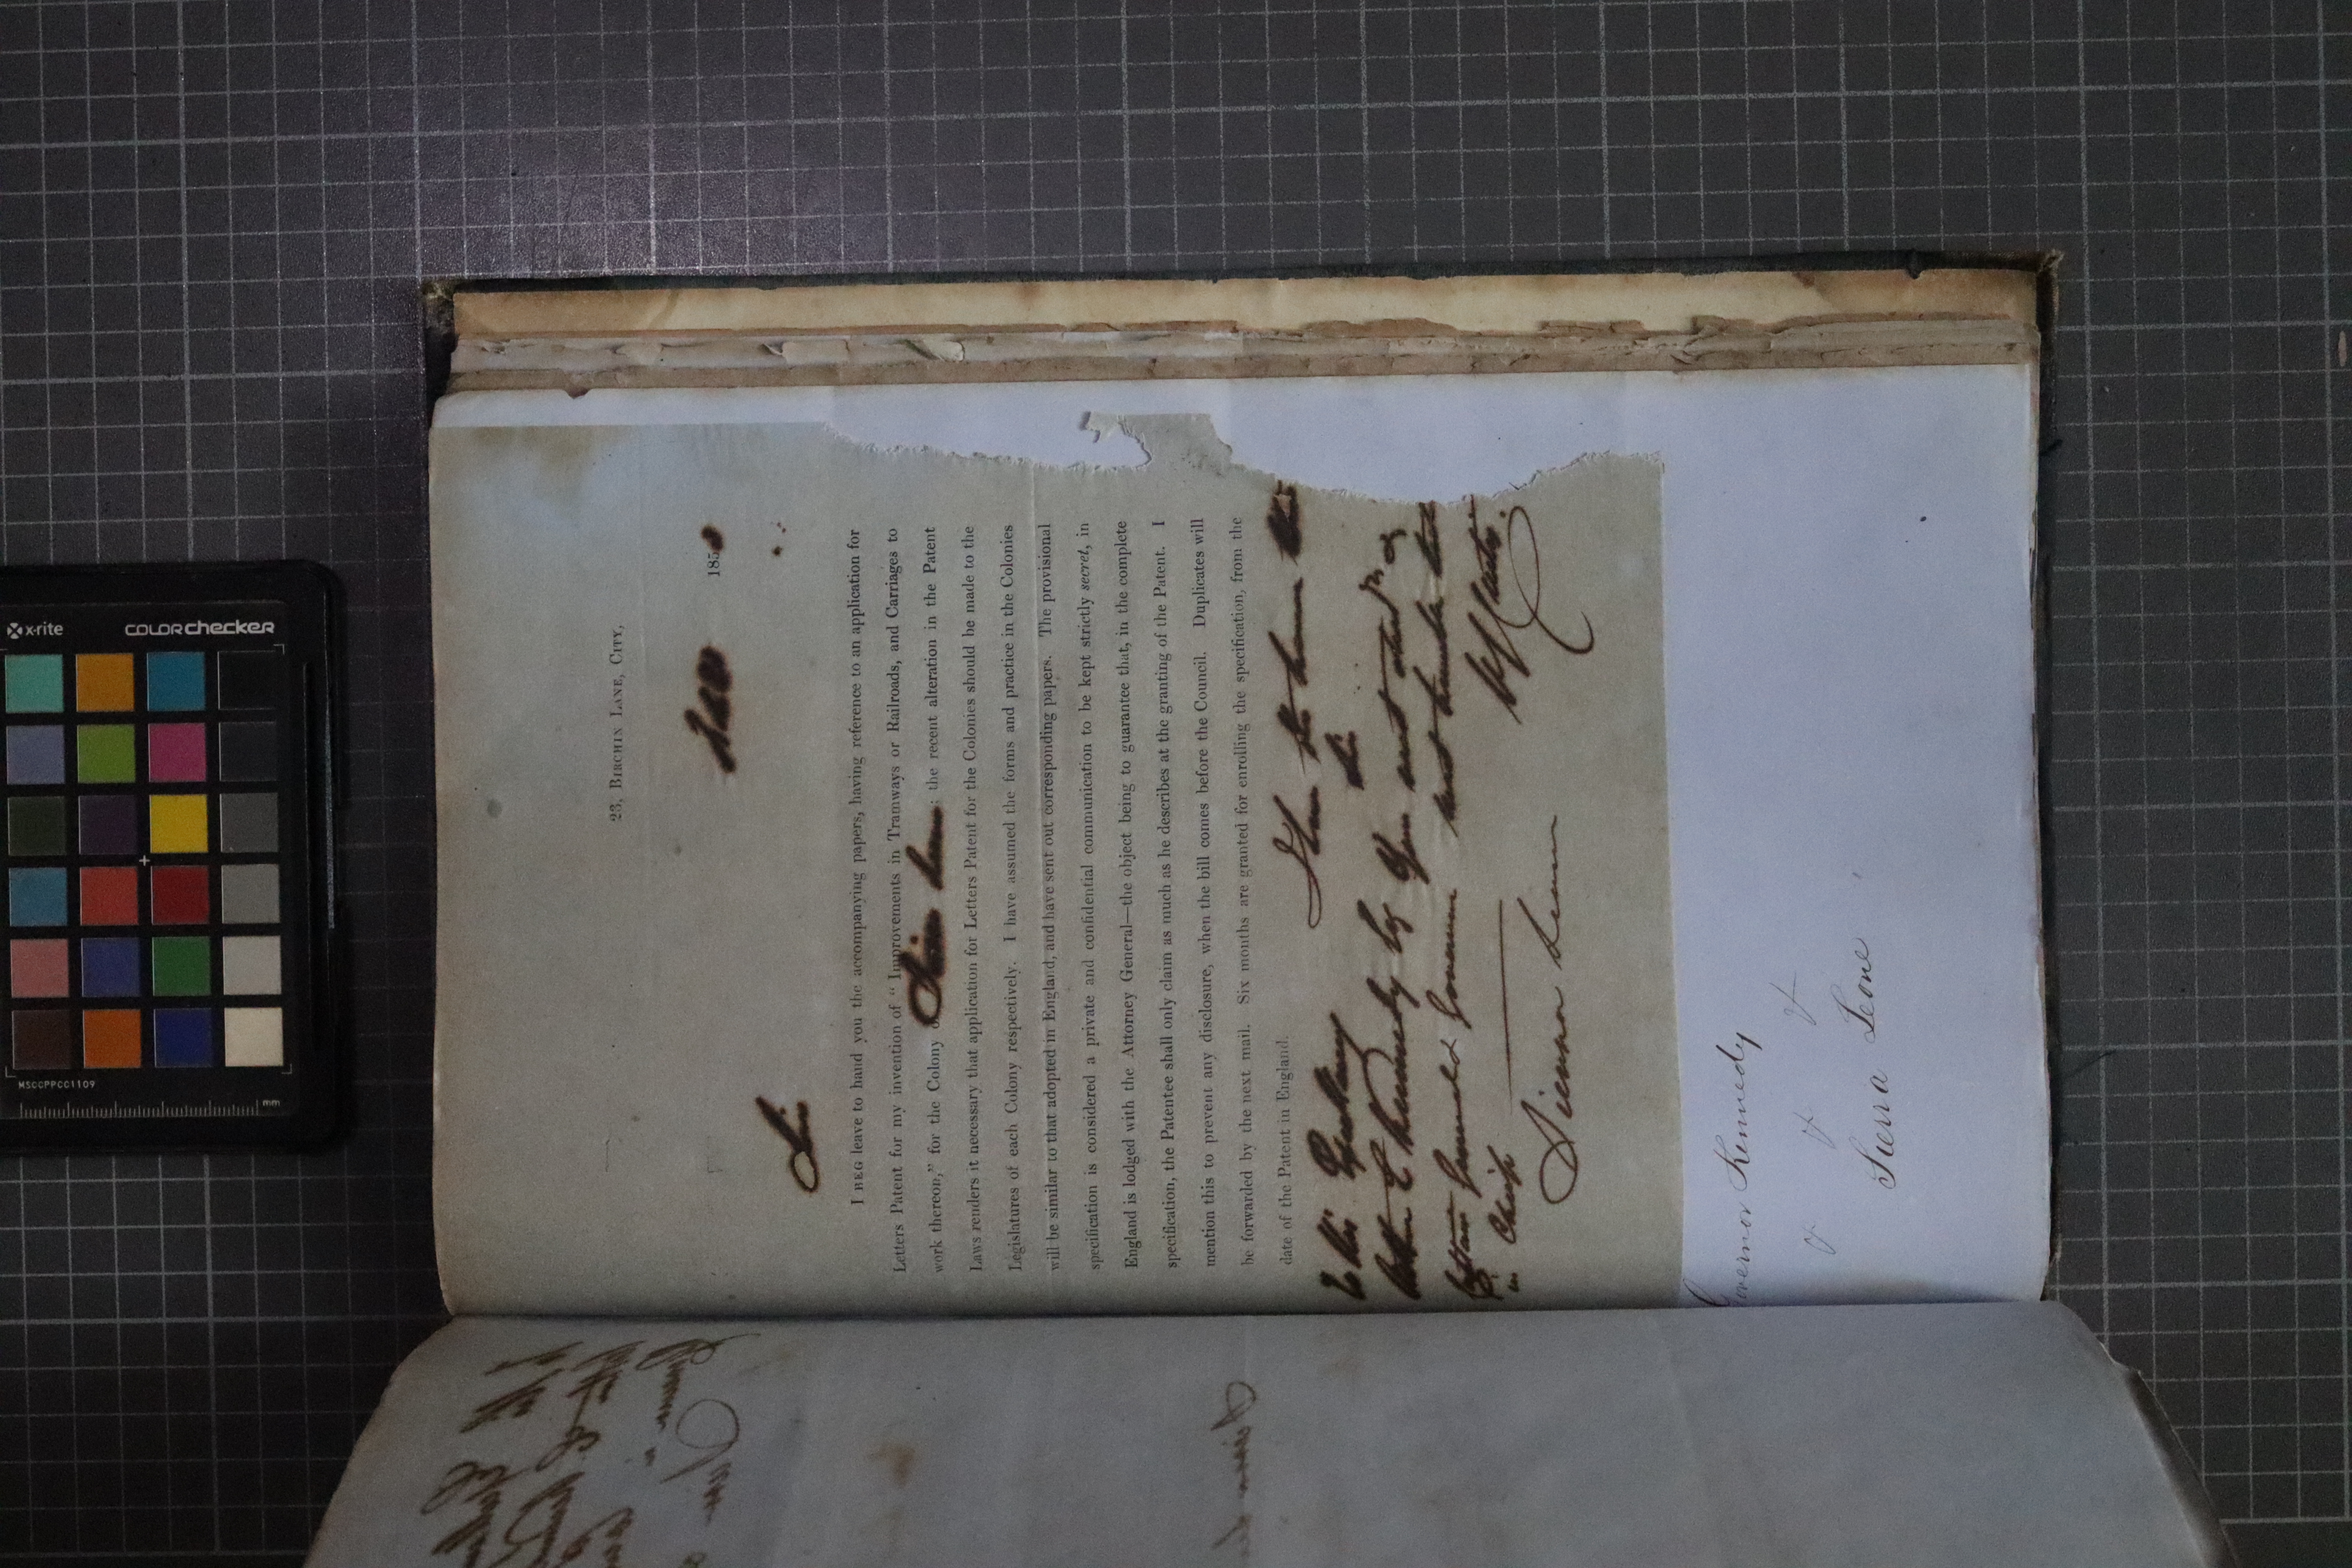 23, BIRCHIN LANE, CITY,
185
Sir
I BEG leave to hand you the accompanying papers, having reference to an application for
Letters Patent for my invention of "Improvements in Tramways or Railroads, and Carriages to
work thereon," for the Colony of Sierra Leone : the recent alteration in the Patent
Laws renders it necessary that application for Letters Patent for the Colonies should be made to the
Legislatures of each Colony respectively. I have assumed the forms and practice in the Colonies
will be similar to that adopted in England, and have sent out corresponding papers. The provisional
specification is considered a private and confidential communication to be kept strictly secret, in
England is lodged with the Attorney General—the object being to guarantee that, in the complete
specification, the Patentee shall only claim as much as he describes at the granting of the Patent. I
mention this to prevent any disclosure, when the bill comes before the Council. Duplicates will
be forwarded by the next mail. Six months are granted for enrolling the specification, from the
date of the Patent in England.
I have the honor
Sir
To His Excellency
Arthur E Kennedy Esq
Your most obed
Captain General & Governor
most humble
in Chief
Sierra Leone
Governor Kennedy
& & &
Sierra Leone
x-rite
COLORchecker
MSCCPPCC1109
mm